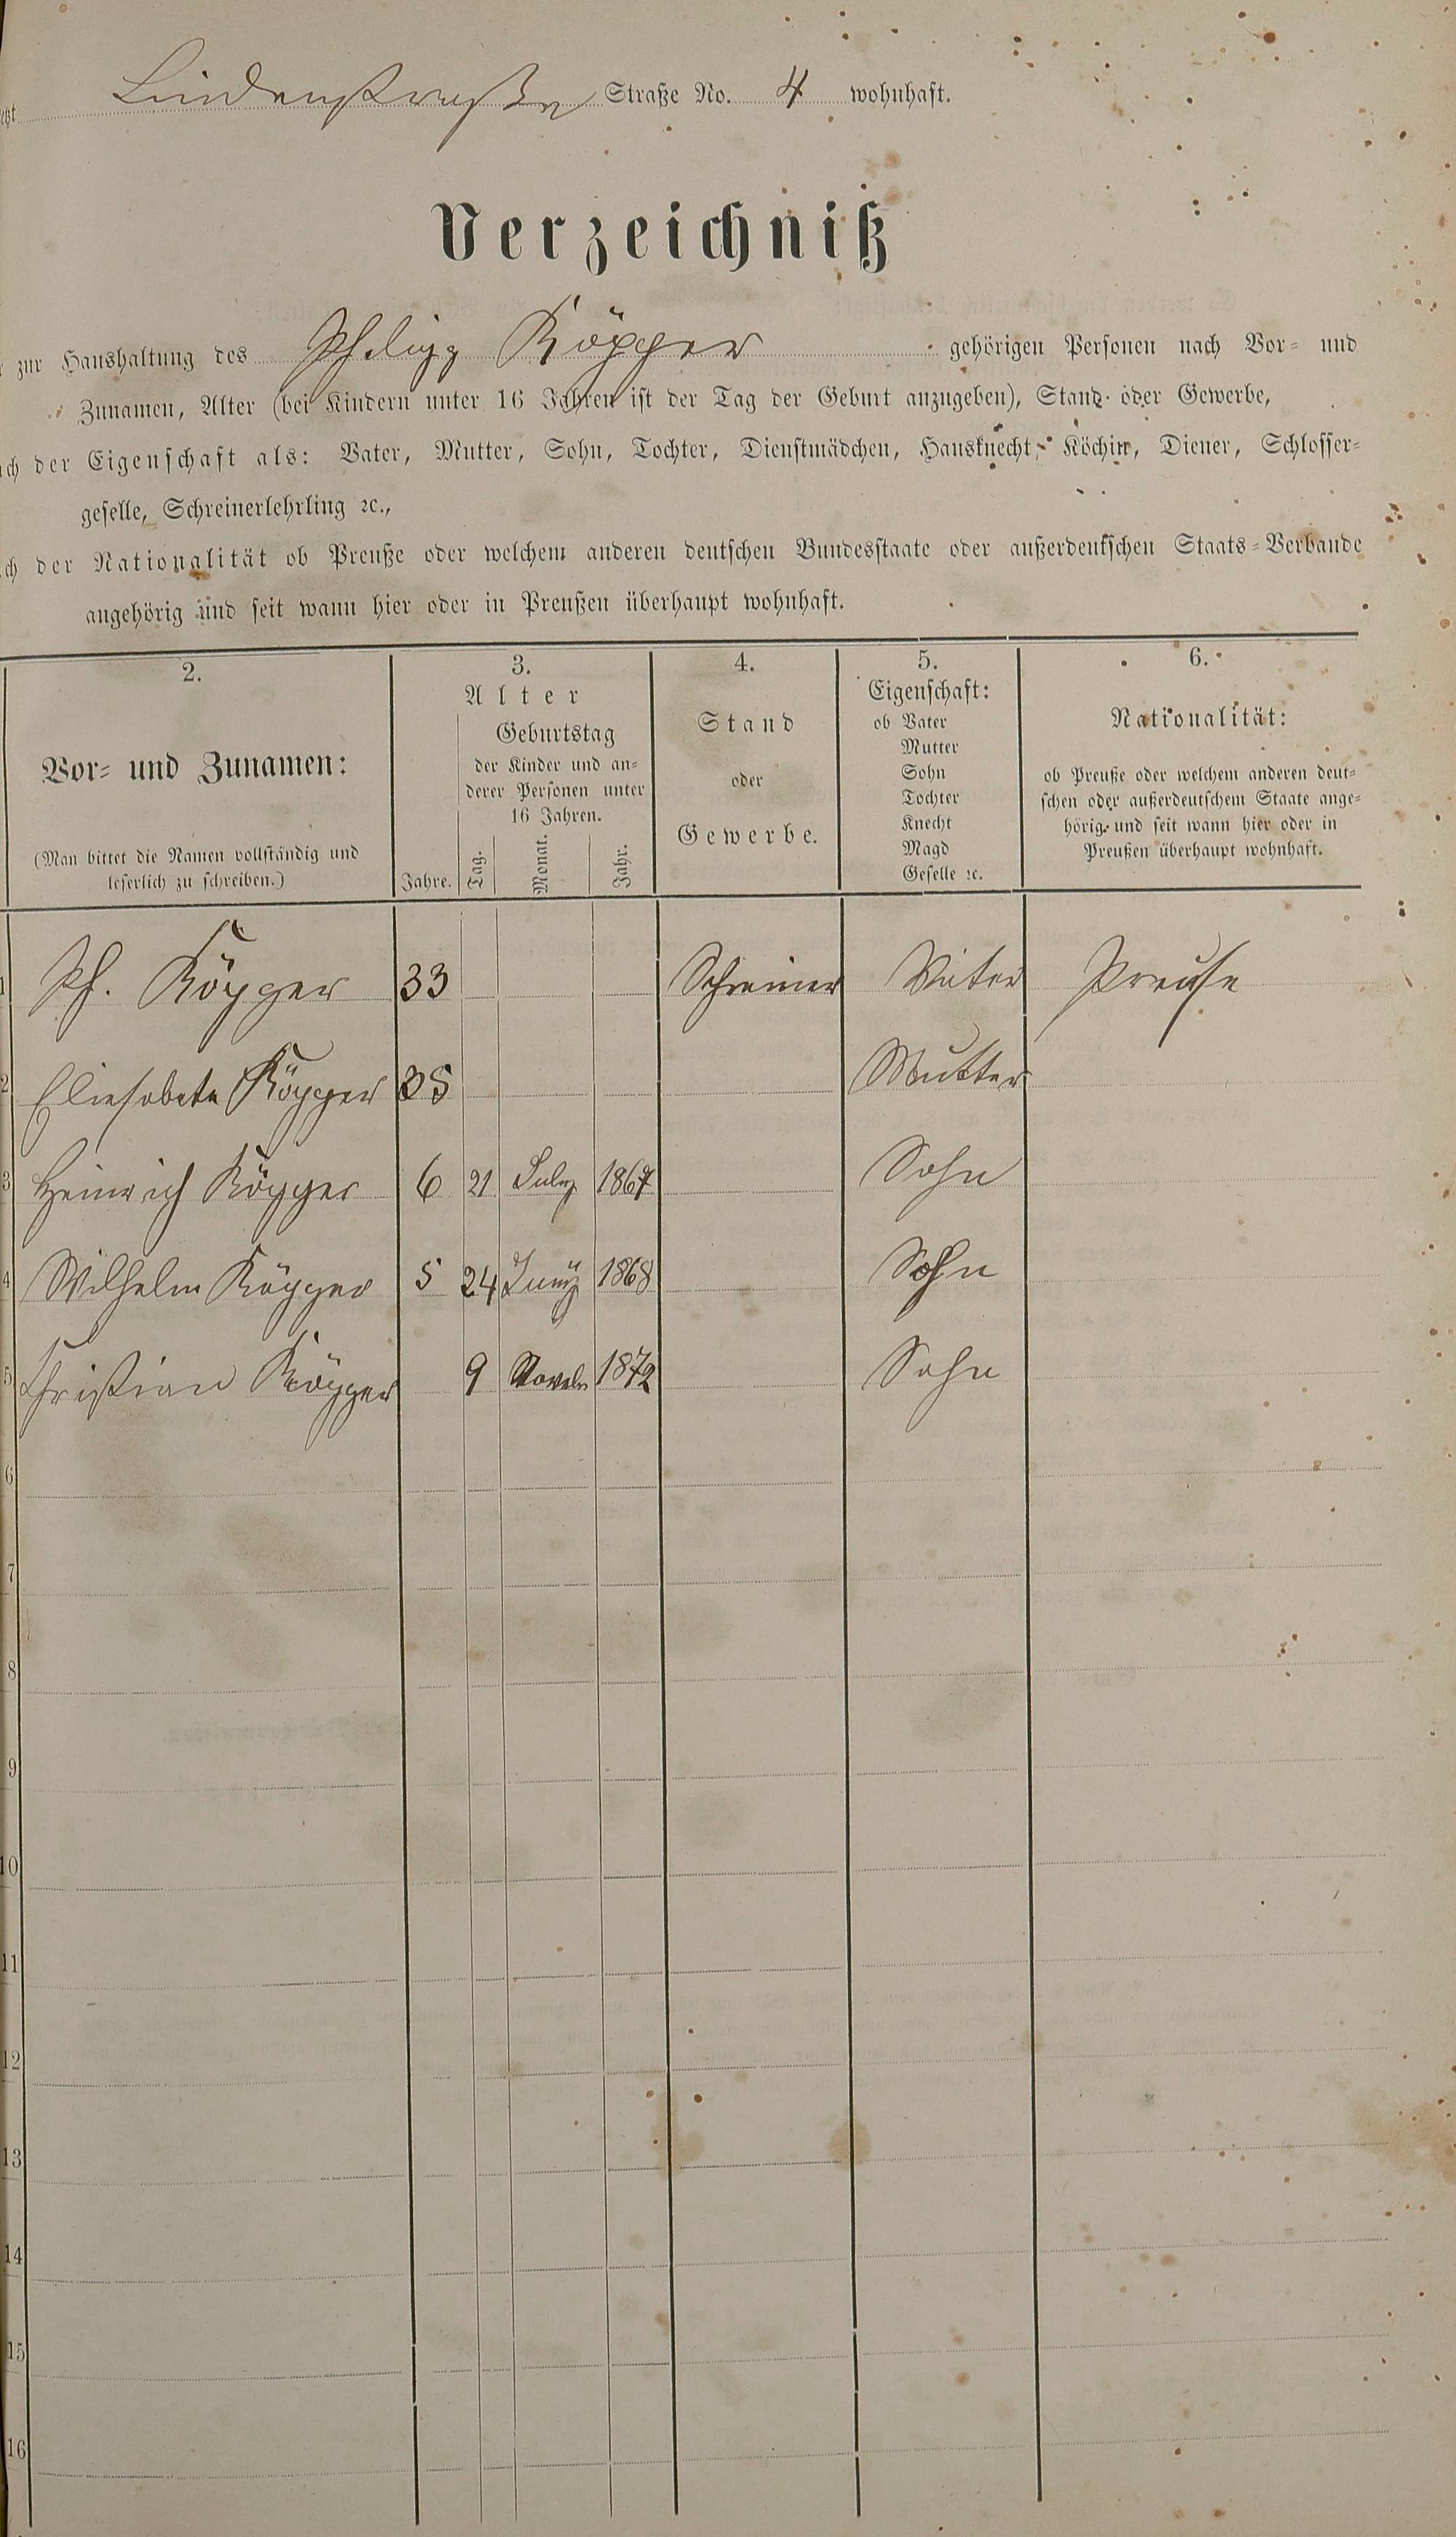 Lindenstraße Straße No. 4 wohnhaft.
Verzeichniß
zur Haushaltung des Philipp Köpper gehörigen Personen nach Vor- und
Zunamen, Alter (bei Kindern unter 16 Jahren ist der Tag der Geburt anzugeben), Stand oder Gewerbe,
der Eigenschaft als: Vater, Mutter, Sohn, Tochter, Dienstmädchen, Hausknecht, Köchin, Diener, Schlosser-
geselle, Schreinerlehrling ꝛc.,
der Nationalität ob Preuße oder welchem anderen deutschen Bundesstaate oder außerdeutschen Staats-Verbande
angehörig und seit wann hier oder in Preußen überhaupt wohnhaft.
2. 3. 4. 5. 6.
Vor- und Zunamen:
(Man bittet die Namen vollständig und
leserlich zu schreiben.)
Alter
Geburtstag
der Kinder und an-
derer Personen unter
16 Jahren.
Jahre. Tag. Monat. Jahr.
Stand
oder
Gewerbe.
Eigenschaft:
ob Vater
Mutter
Sohn
Tochter
Knecht
Magd
Geselle ꝛc.
Nationalität:
ob Preuße oder welchem anderen deut-
schen oder außerdeutschem Staate ange-
hörig und seit wann hier oder in
Preußen überhaupt wohnhaft.
1 Ph. Köpper 33 Schreiner Vater Preuse
2 Eliesabeta Köpper 35 Mutter
3 Heinrich Köpper 6 21 July 1867 Sohn
4 Wilhelm Köpper 5 24 Juny 1868 Sohn
5 Christian Köpper 9 Novebr 1872 Sohn
6
7
8
9
10
11
12
13
14
15
16